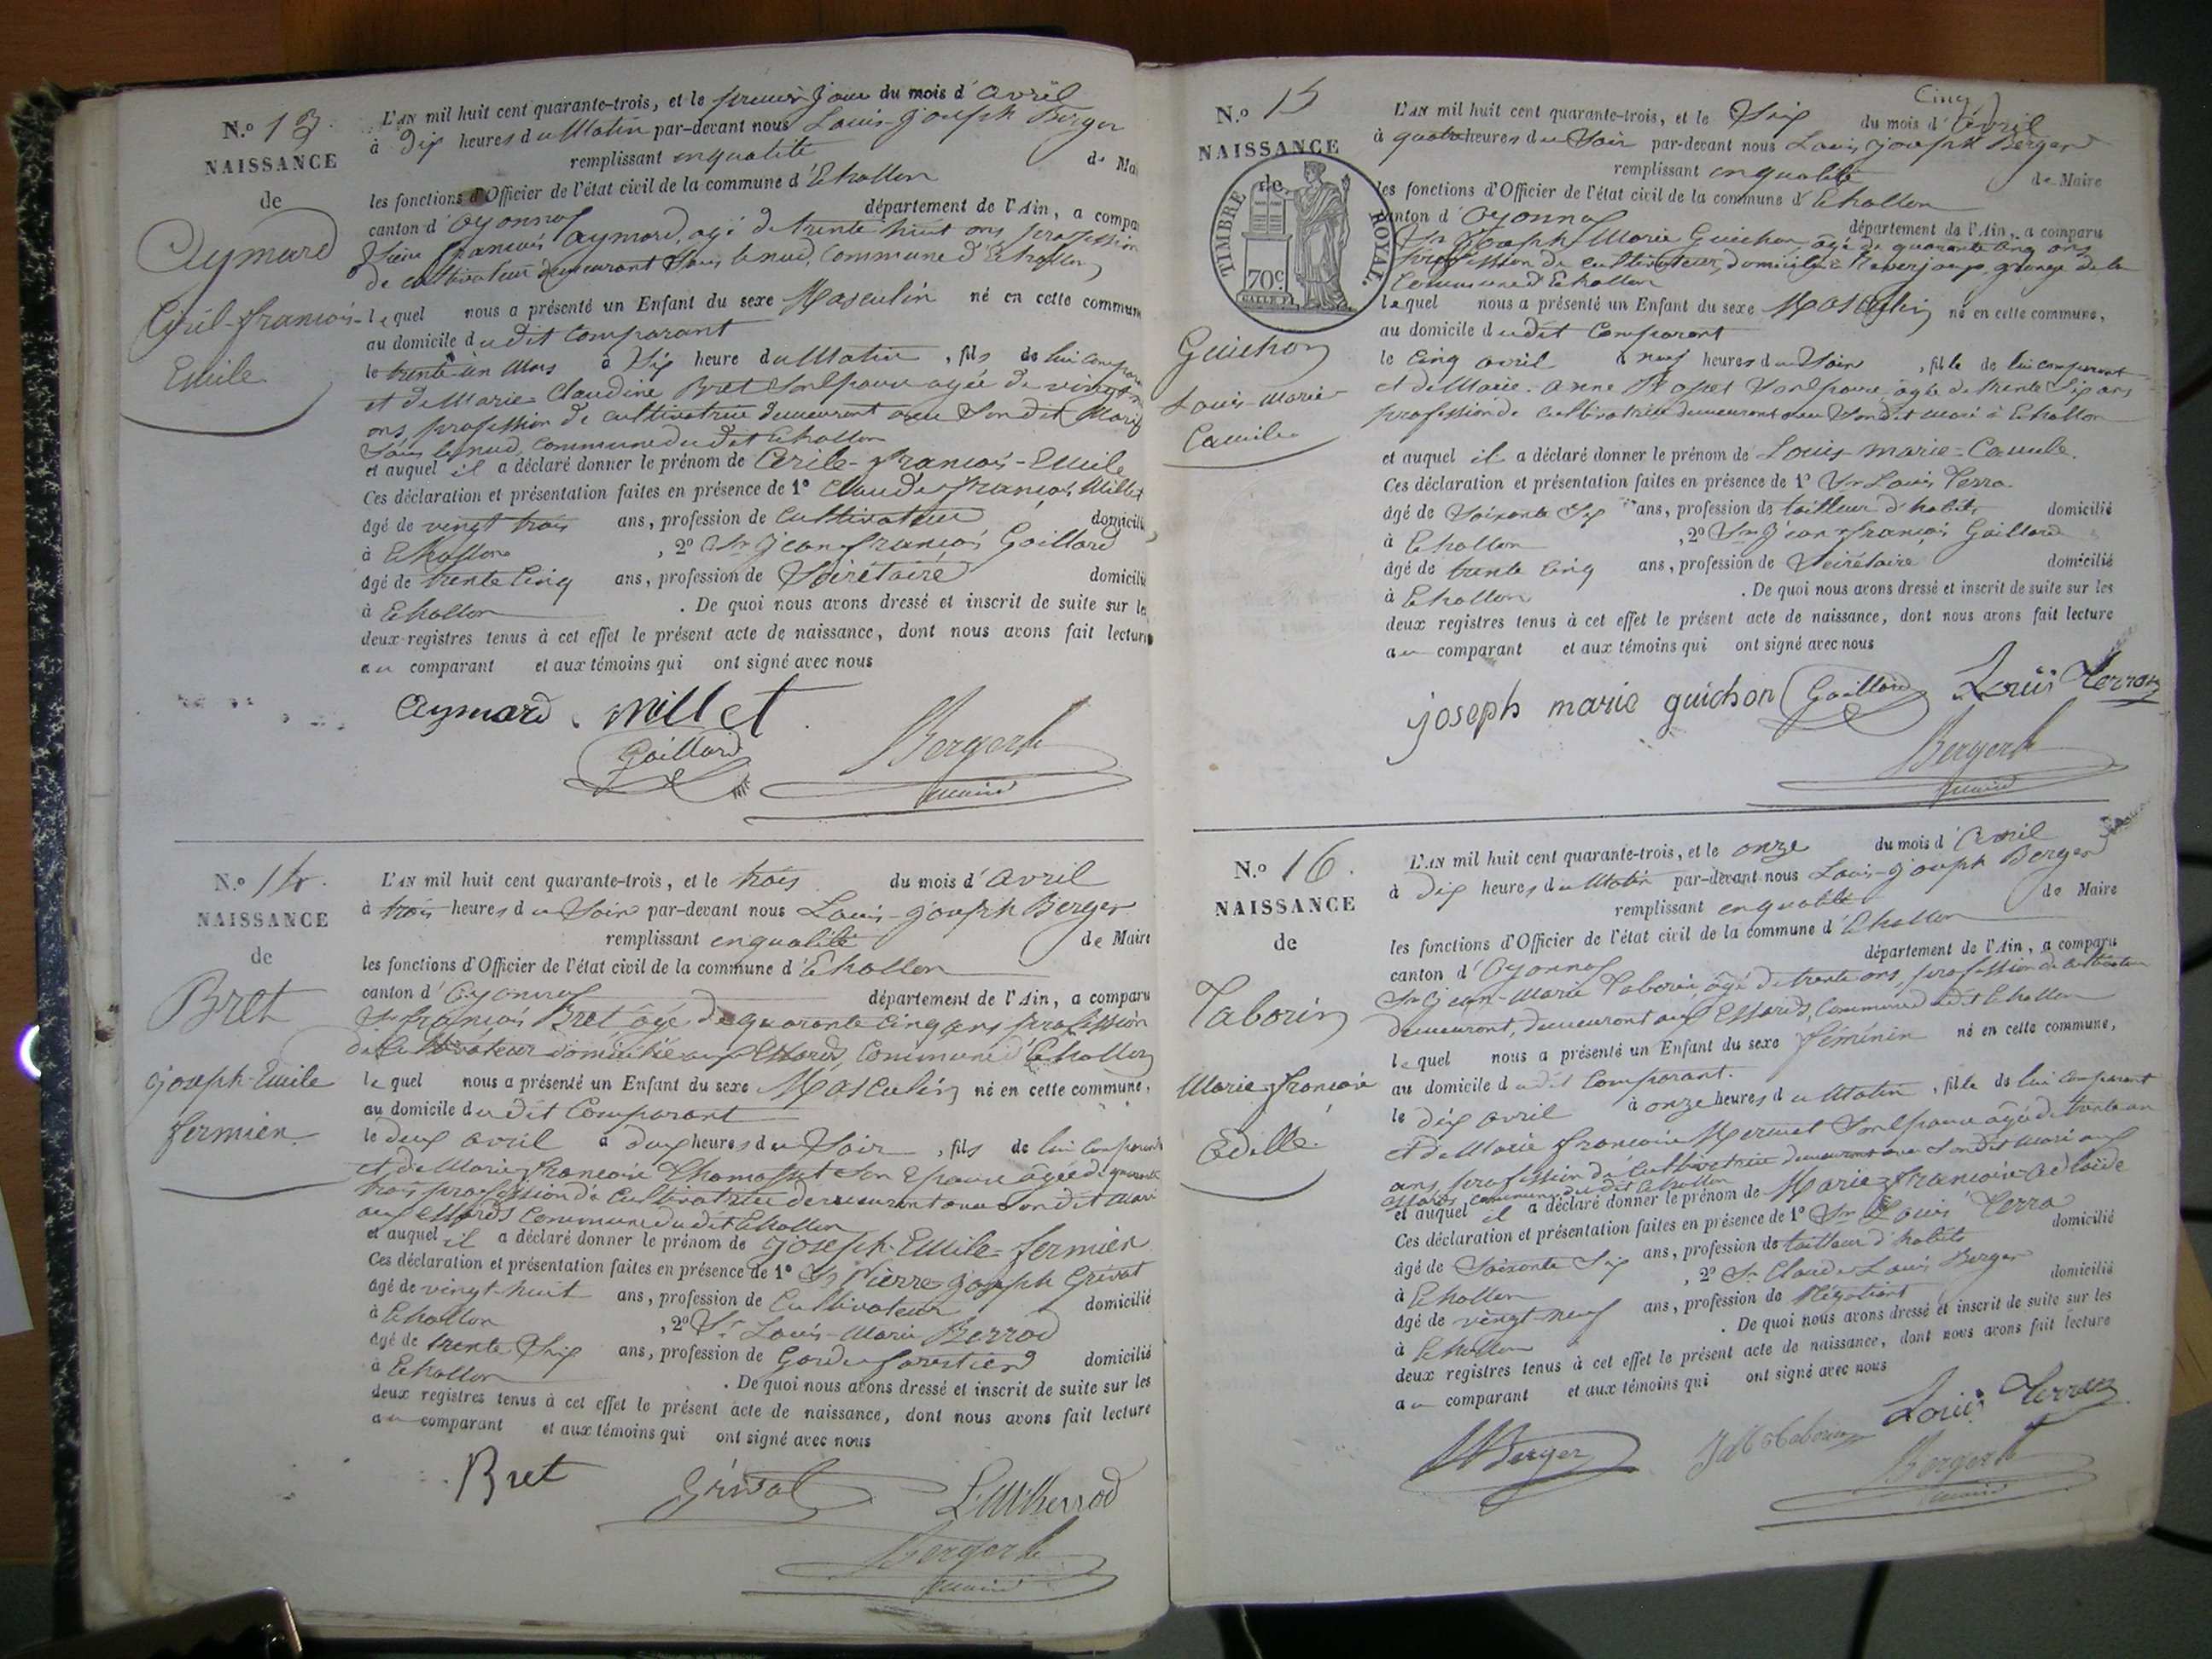 N.º 13.
NAISSANCE
de
Aymard
Ciril-françois-
Emile
L'AN mil huit cent quarante-trois, et le premier jour du mois d'avril
à Dix heures du Matin par-devant nous Louis-Joseph Berger
remplissant en qualité de Mai
les fonctions d'Officier de l'état civil de la commune d'Echallon
canton d'Oyonnax département de l'Ain, a compa
Sieur françois Aymard, agé de trente huit ans profession
de cultivateur demeurant Sous le nud, Commune d'Echallon
lequel nous a présenté un Enfant du sexe Masculin né en cette commun
au domicile dudit Comparant
le trente-un Mars à Dix heure du Matin, fils de lui compar
et de Marie-Claudine Bret Son Epouse agée de vingt
ans profession de cultivatrice demeurant avec Son dit Mari
Sous le nud, Commune du dit Echallon
et auquel il a déclaré donner le prénom de Cirile-françois-Emile
Ces déclaration et présentation faites en présence de 1º Claude françois Millet
âgé de vingt trois ans, profession de Cultivateur domicilié
à Echallon, 2º Sr Jean françois Gaillard
âgé de trente Cinq ans, profession de Sécrétaire domicilié
à Echallon. De quoi nous avons dressé et inscrit de suite sur le
deux registres tenus à cet effet le présent acte de naissance, dont nous avons fait lecture
au comparant et aux témoins qui ont signé avec nous
Aymard. Millet
Gaillard Berger
maire
N.º 14.
NAISSANCE
de
Bret
Joseph-Emile
fermien
L'AN mil huit cent quarante-trois, et le trois du mois d'avril
à trois heures du Soir par-devant nous Louis-Joseph Berger
remplissant en qualité de Maire
les fonctions d'Officier de l'état civil de la commune d'Echallon
canton d'Oyonnax département de l'Ain, a comparu
Sr françois Bret âgé de quarante Cinq ans profession
de Cultivateur domicilié aux Essards, Commune d'Echallon
lequel nous a présenté un Enfant du sexe Masculin né en cette commune,
au domicile dudit Comparant
le deux avril à deux heures du Soir, fils de lui Comparant
et de Marie françoise Thomasset Son Epouse agée de quarante
trois profession de Cultivatrice demeurant avec Son dit Mari
aux Essards Commune du dit Echallon
et auquel il a déclaré donner le prénom de Joseph-Emile-fermien
Ces déclaration et présentation faites en présence de 1º Sr Pierre Joseph Grivat
âgé de vingt-huit ans, profession de Cultivateur domicilié
à Echallon, 2º Sr Louis-Marie
âgé de trente Six ans, profession de Garde forestier domicilié
à Echallon. De quoi nous avons dressé et inscrit de suite sur les
deux registres tenus à cet effet le présent acte de naissance, dont nous avons fait lecture
au comparant et aux témoins qui ont signé avec nous
Bret Grivat
Berger
maire
N.º 15
NAISSANCE
de
TIMBRE ROYAL.
70c
Guichon
Louis-Marie-
Camile
Cinq
L'AN mil huit cent quarante-trois, et le Six du mois d'avril
à quatre heures du Soir par-devant nous Louis Joseph Berger
remplissant en qualité de Maire
les fonctions d'Officier de l'état civil de la commune d'Echallon
canton d'Oyonnax département de l'Ain, a comparu
Sr Joseph Marie Guichon, âgé de quarante Cinq ans
profession de cultivateur, domicilié à grange de la
Commune d'Echallon
lequel nous a présenté un Enfant du sexe Masculin né en cette commune,
au domicile dudit Comparant
le Cinq avril à neuf heures du Soir, fils de lui comparant
et de Marie-anne Son Epouse, agée de trente Six ans
profession de Cultivatrice demeurant avec Son dit Mari à Echallon
et auquel il a déclaré donner le prénom de Louis-Marie-Camile.
Ces déclaration et présentation faites en présence de 1º Sr Louis Terra.
âgé de Soixante Six ans, profession de tailleur d'habits domicilié
à Echallon, 2º Sr Jean-françois Gaillard
âgé de trente Cinq ans, profession de Sécrétaire domicilié
à Echallon. De quoi nous avons dressé et inscrit de suite sur les
deux registres tenus à cet effet le présent acte de naissance, dont nous avons fait lecture
au comparant et aux témoins qui ont signé avec nous
joseph marie guichon Gaillard Louis Terraz
Berger
maire
N.º 16.
NAISSANCE
de
Taborin
Marie-françoise
Adelle.
L'AN mil huit cent quarante-trois, et le onze du mois d'Avril
à Dix heures du Matin par-devant nous Louis-Joseph Berger
remplissant en qualité de Maire
les fonctions d'Officier de l'état civil de la commune d'Echallon
canton d'Oyonnax département de l'Ain, a comparu
Sr Jean-Marie Taborin, âgé de trente ans, profession de cultivateur
demeurant, demeurant aux Essards, Commune du dit Echallon
lequel nous a présenté un Enfant du sexe féminin né en cette commune,
au domicile dudit Comparant.
le dix avril à onze heures du Matin, fille de lui comparant
et de Marie françoise Mermet Son Epouse âgée de trente un
ans, profession de Cultivatrice demeurant avec Son dit Mari aux
Essards, Commune du dit Echallon
et auquel il a déclaré donner le prénom de Marie-françoise-Adelaïde
Ces déclaration et présentation faites en présence de 1º Sr Louis Terra
âgé de Soixante Six ans, profession de tailleur d'habits domicilié
à Echallon, 2º Sr Claude Louis Berger
âgé de vingt-neuf ans, profession de Négotiant domicilié
à Echallon. De quoi nous avons dressé et inscrit de suite sur les
deux registres tenus à cet effet le présent acte de naissance, dont nous avons fait lecture
au comparant et aux témoins qui ont signé avec nous
Berger J M Taborin Louis Terraz
Berger
maire